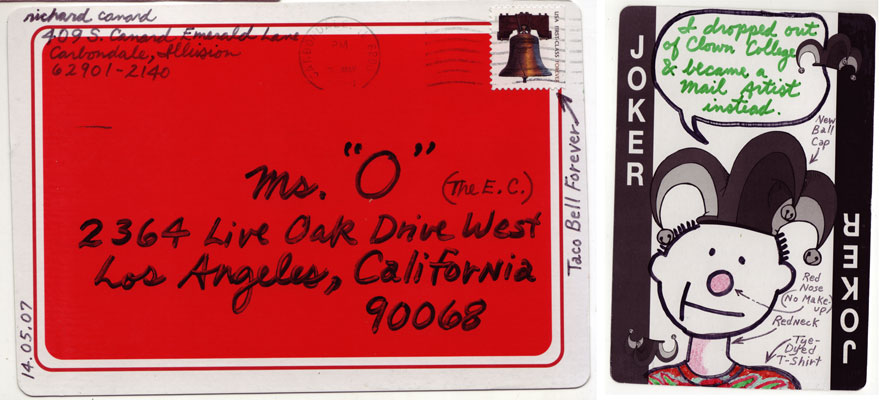 richard canard
409 S. Canard Emerald Lane
Carbondale, Illusion
62901-2140
PM
USA FIRST-CLASS FOREVER
Taco Bell Forever
Ms. "O"
(The E.C.)
2364 Live Oak Drive West
Los Angeles, California
90068
14.05.07
JOKER
I dropped out
of Clown College
& became a
Mail Artist
instead.
New
Ball
Cap
Red
Nose
(No Make-
up)
Redneck
Tye-
Dyed
T-Shirt
JOKER